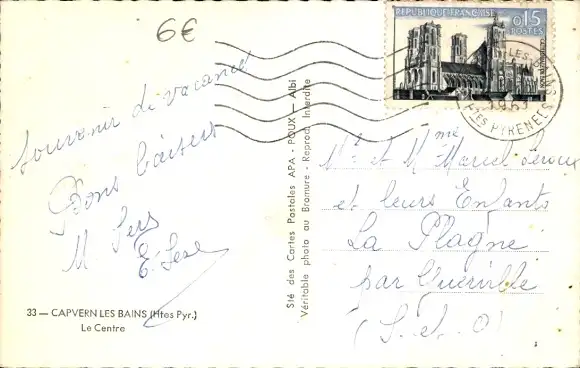 6€
Souvenir de vacances
Bons baisers
M. Sers
E. Sers
33 — CAPVERN LES BAINS (Htes Pyr.)
Le Centre
Sté des Cartes Postales APA - POUX — Albi
Véritable photo au Bromure - Reprod. Interdite
REPUBLIQUE FRANÇAISE
0,15
POSTES
LES-BAINS
Htes PYRENEES
Mr et Mme Marcel Leroux
et leurs Enfants
La Plagne
par Guerville
(S. et O)